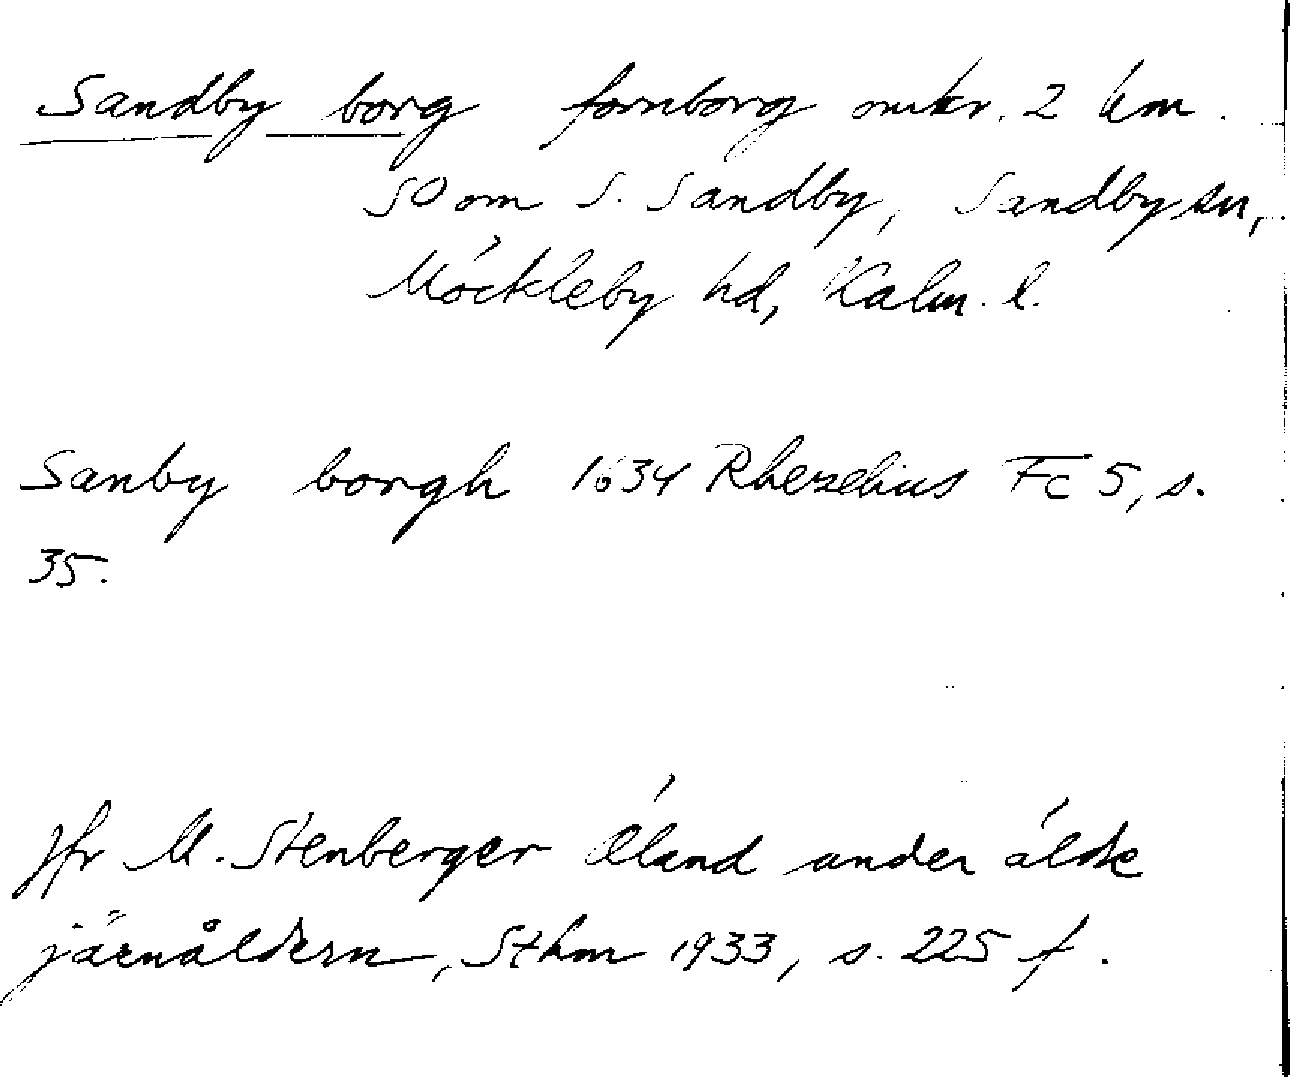 Sandby borg fornborg omkr. 2 km
SO om S. Sandby, Sandby sn,
Möckleby hd, Kalm. l.
Sanby borgh 1634 Rhezelius Fc 5, s.
35.
Jfr M. Stenberger Öland under äldre
järnåldern, Sthm 1933, s. 225 f.